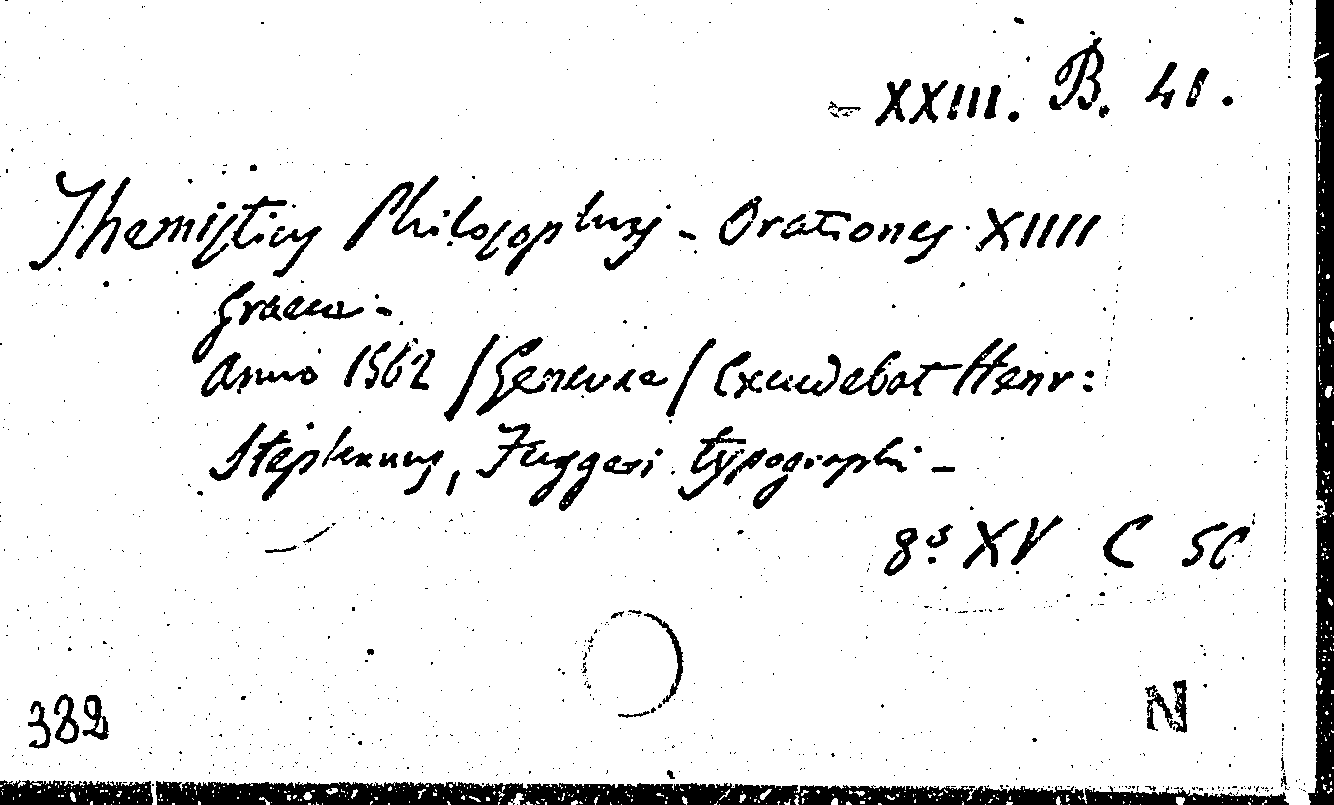 XXIII. B. 41.
Themistius Philosophus - Orationes XIIII
Graeca -
Anno 1562 /Genevae/ Excudebat Henr:
Stephanus, Fuggeri typographi -
8:s XV C 50
382
N